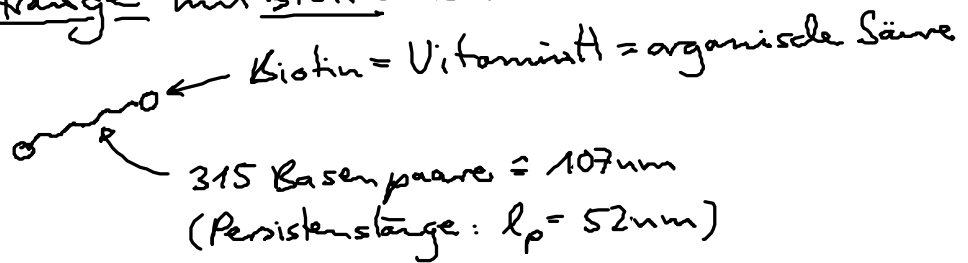 mit
Biotin = Vitamin H = organische Säure
315 Basenpaare ≙ 107nm
(Persistenslänge: lₚ = 52nm)